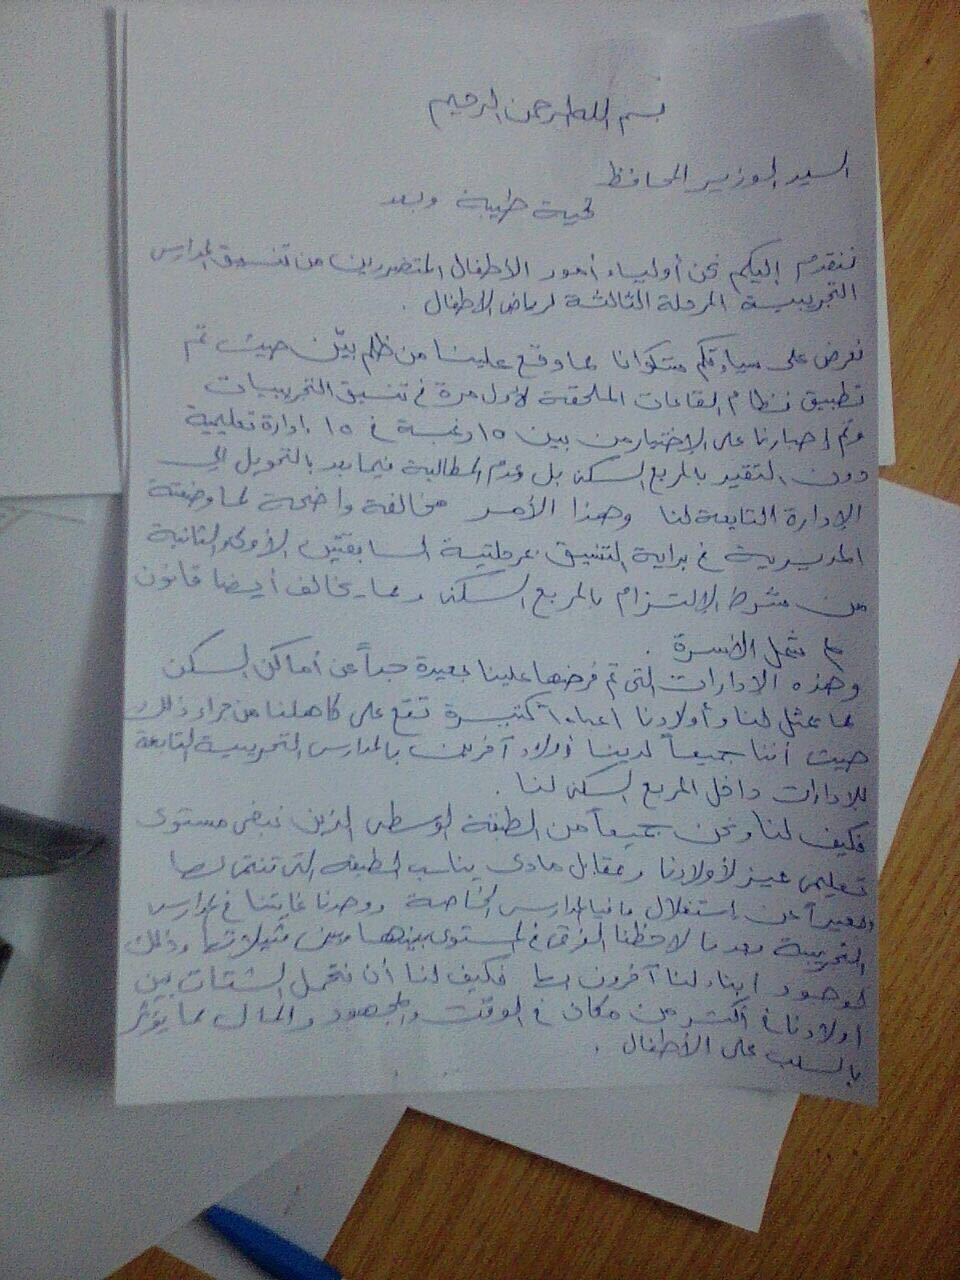 بسم الله الرحمن الرحيم
السيد الوزير المحافظ
تحية طيبة وبعد
نتقدم إليكم نحن أولياء أمور الأطفال المتضررين من تنسيق المدارس
التجريبية المرحلة الثالثة لرياض الاطفال .
نعرض على سيادتكم شكوانا مما وقع علينا من ظلم بيّن حيث تم
تطبيق نظام القاعات الملحقة لأول مرة فى تنسيق التجريبيات
وتم إجبارنا على الإختيار من بين ١٥ رغبة فى ١٥ إدارة تعليمية
دون التقيد بالمربع السكنى بل وعدم المطالبة فيما بعد بالتحويل إلى
الإدارة التابعة لنا وهذا الأمر مخالفة واضحة لما وضعته
المديرية فى بداية التنسيق بمرحلتيه السابقتين الأولى والثانية
من شرط الإلتزام بالمربع السكنى ومما يخالف أيضا قانون
لم شمل الأسرة .
وهذه الادارات التى تم فرضها علينا بعيدة جداً عن أماكن السكن
مما يمثل لنا وأولادنا اعباءاً كثيرة تقع على كاهلنا من جراء ذلك
حيث أننا جميعاً لدينا أولاد آخرين بالمدارس التجريبية التابعة
للادارات داخل المربع السكنى لنا .
فكيف لنا ونحن جميعاً من الطبقة الوسطى الذين نبغى مستوى
تعليمى مميز لأولادنا ومقابل مادى يناسب الطبقة التى ننتمى لها
وبعيداً عن إستغلال مافيا المدارس الخاصة ووجدنا غايتنا فى المدارس
التجريبية بعدما لاحظنا الفرق فى المستوى بينها وبين مثيلاتها وذلك
لوجود ابناء لنا آخرون بها فكيف لنا أن نتحمل الشتات بين
أولادنا فى أكثر من مكان فى الوقت والمجهود والمال مما يؤثر
بالسلب على الأطفال .